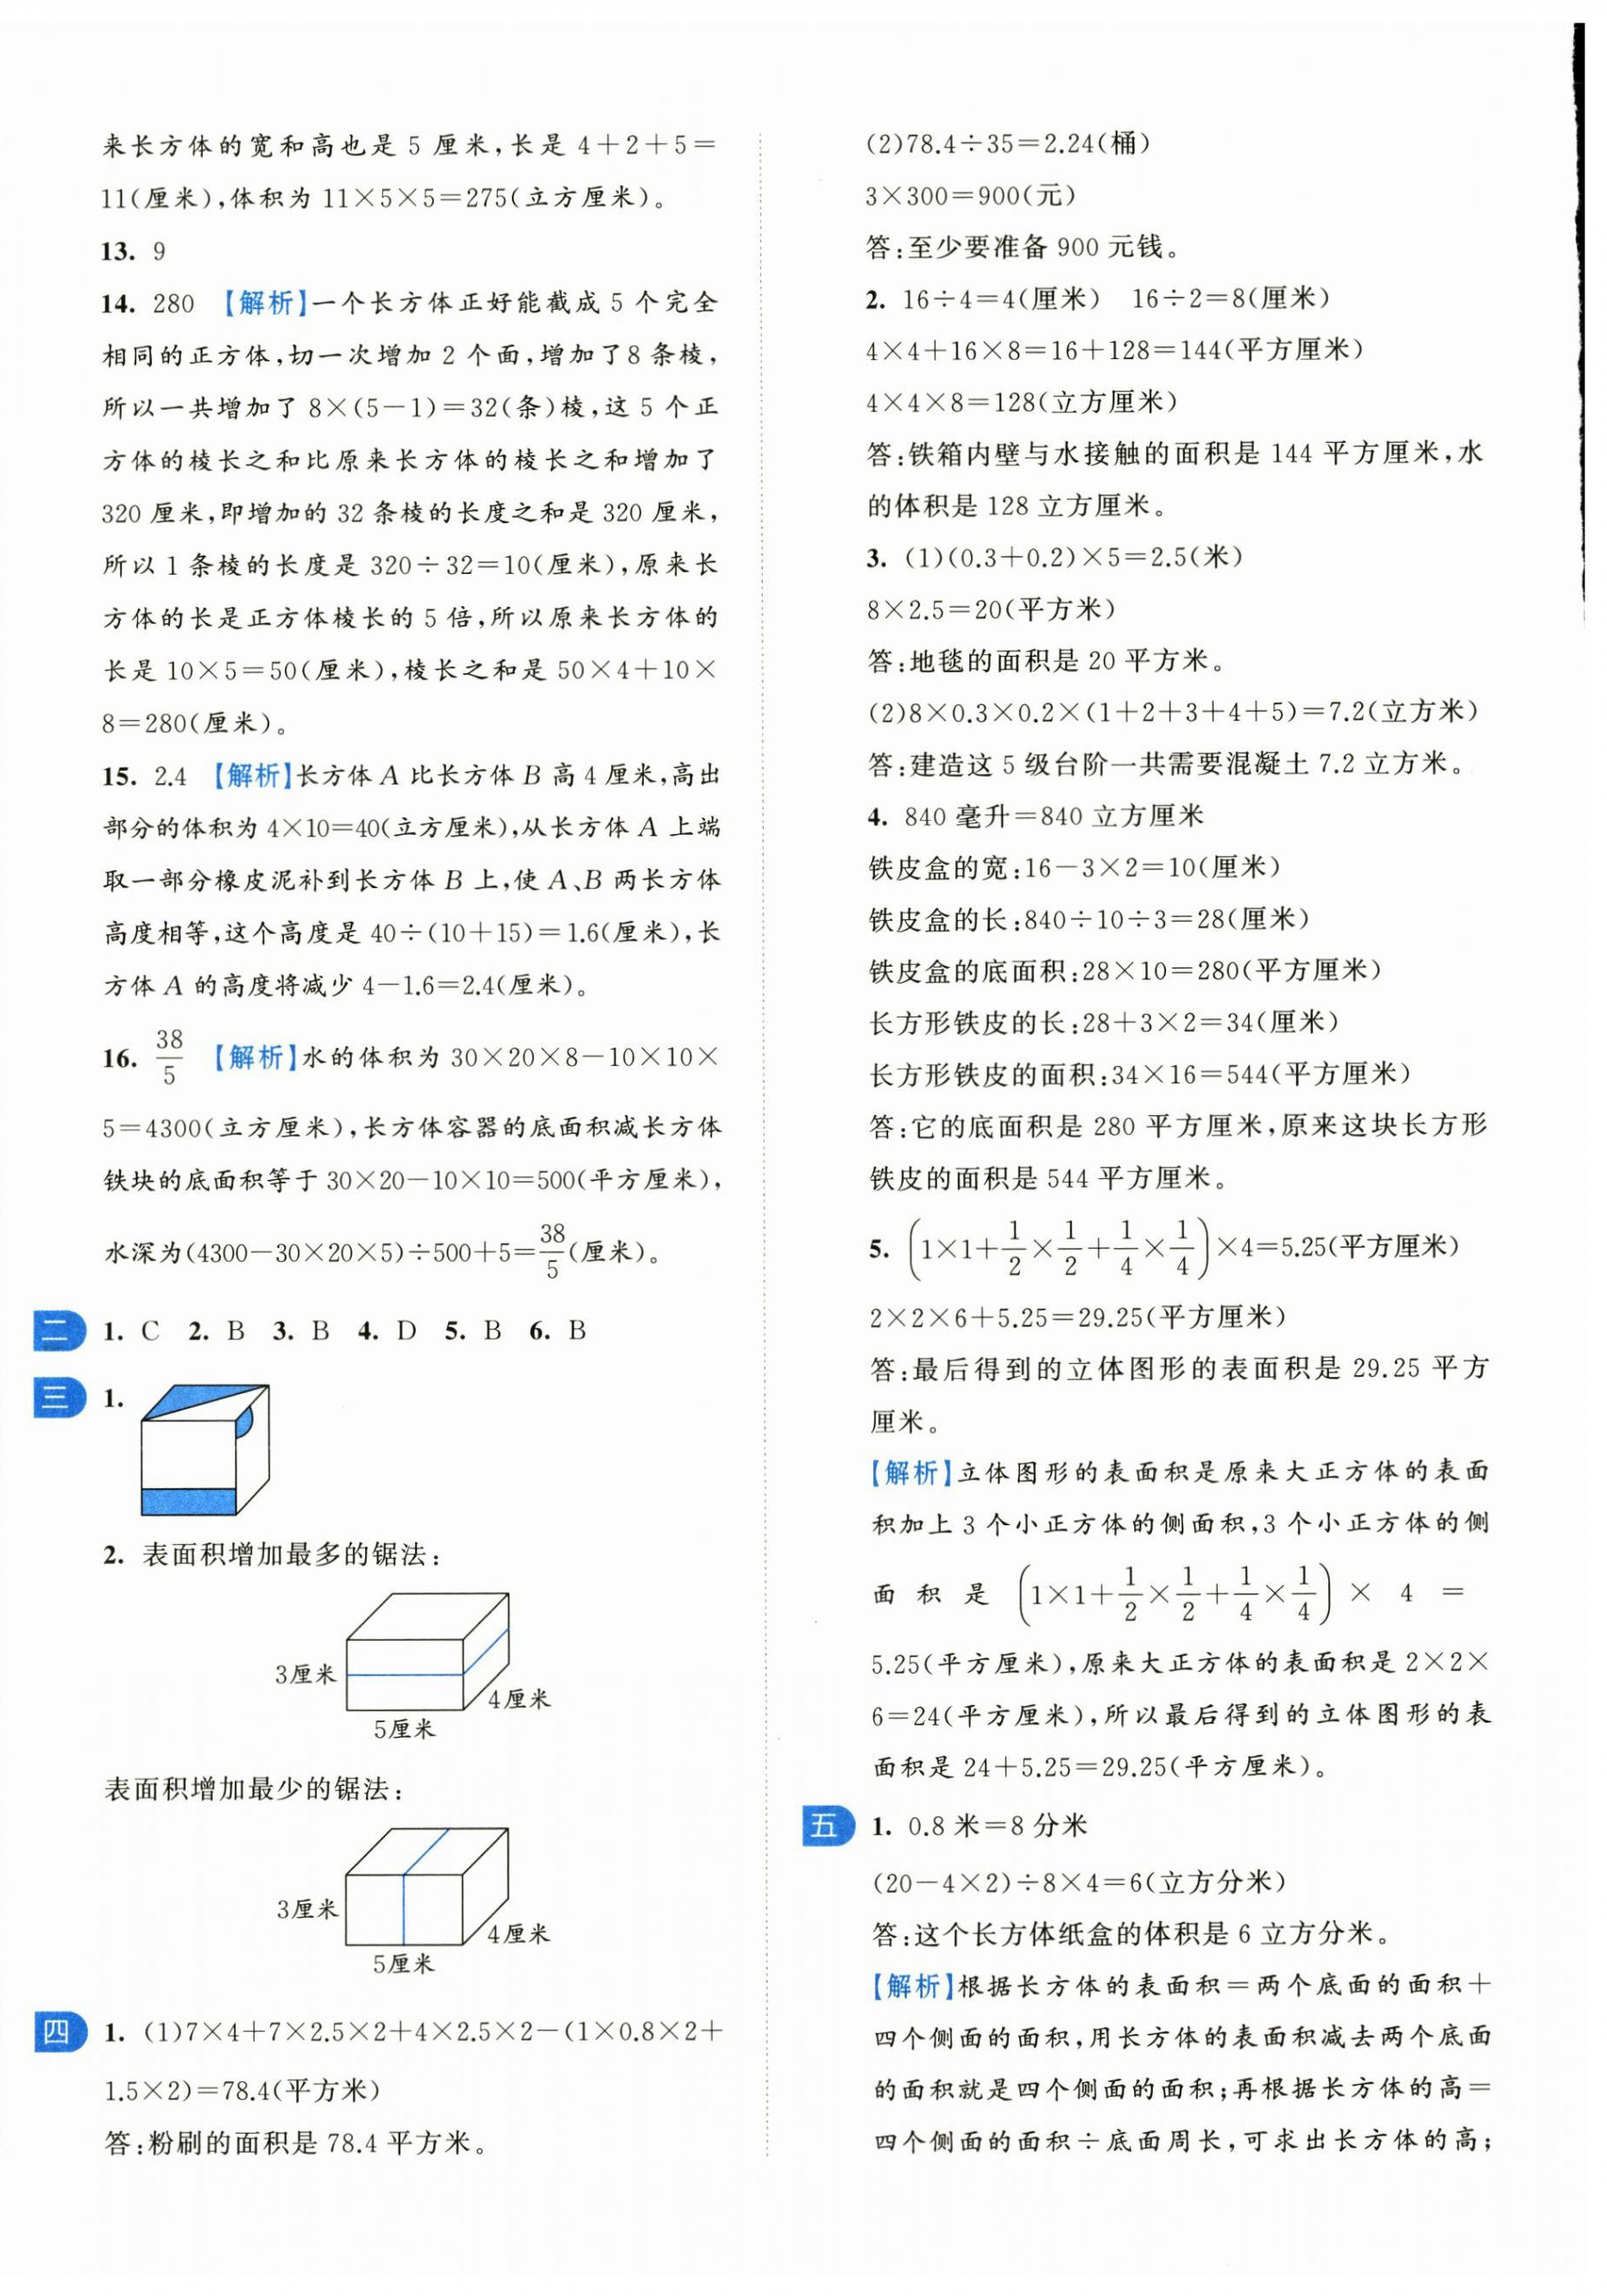 来长方体的宽和高也是 5 厘米,长是 4+2+5=
11(厘米),体积为 11×5×5=275(立方厘米)。
13. 9
14. 280 【解析】一个长方体正好能截成 5 个完全
相同的正方体,切一次增加 2 个面,增加了8 条棱,
所以一共增加了 8×(5-1)=32(条)棱,这 5 个正
方体的棱长之和比原来长方体的棱长之和增加了
320 厘米,即增加的 32 条棱的长度之和是 320 厘米,
所以 1 条棱的长度是 320÷32=10(厘米),原来长
方体的长是正方体棱长的 5 倍,所以原来长方体的
长是 10×5=50(厘米),棱长之和是 50×4+10×
8=280(厘米)。
15. 2.4 【解析】长方体 A 比长方体 B 高 4 厘米,高出
部分的体积为 4×10=40(立方厘米),从长方体 A 上端
取一部分橡皮泥补到长方体 B 上,使 A、B 两长方体
高度相等,这个高度是 40÷(10+15)=1.6(厘米),长
方体 A 的高度将减少 4-1.6=2.4(厘米)。
16. 38/5 【解析】水的体积为 30×20×8-10×10×
5=4300(立方厘米),长方体容器的底面积减长方体
铁块的底面积等于 30×20-10×10=500(平方厘米),
水深为(4300-30×20×5)÷500+5=38/5(厘米)。
二 1. C 2. B 3. B 4. D 5. B 6. B
三 1.
2. 表面积增加最多的锯法:
3厘米
4厘米
5厘米
表面积增加最少的锯法:
3厘米
4厘米
5厘米
四 1. (1)7×4+7×2.5×2+4×2.5×2-(1×0.8×2+
1.5×2)=78.4(平方米)
答:粉刷的面积是 78.4 平方米。
(2)78.4÷35=2.24(桶)
3×300=900(元)
答:至少要准备 900 元钱。
2. 16÷4=4(厘米) 16÷2=8(厘米)
4×4+16×8=16+128=144(平方厘米)
4×4×8=128(立方厘米)
答:铁箱内壁与水接触的面积是 144 平方厘米,水
的体积是 128 立方厘米。
3. (1)(0.3+0.2)×5=2.5(米)
8×2.5=20(平方米)
答:地毯的面积是 20 平方米。
(2)8×0.3×0.2×(1+2+3+4+5)=7.2(立方米)
答:建造这 5 级台阶一共需要混凝土 7.2 立方米。
4. 840 毫升=840 立方厘米
铁皮盒的宽:16-3×2=10(厘米)
铁皮盒的长:840÷10÷3=28(厘米)
铁皮盒的底面积:28×10=280(平方厘米)
长方形铁皮的长:28+3×2=34(厘米)
长方形铁皮的面积:34×16=544(平方厘米)
答:它的底面积是 280 平方厘米,原来这块长方形
铁皮的面积是 544 平方厘米。
5. (1×1+1/2×1/2+1/4×1/4)×4=5.25(平方厘米)
2×2×6+5.25=29.25(平方厘米)
答:最后得到的立体图形的表面积是 29.25 平方
厘米。
【解析】立体图形的表面积是原来大正方体的表面
积加上 3 个小正方体的侧面积,3 个小正方体的侧
面积是 (1×1+1/2×1/2+1/4×1/4) × 4 =
5.25(平方厘米),原来大正方体的表面积是 2×2×
6=24(平方厘米),所以最后得到的立体图形的表
面积是 24+5.25=29.25(平方厘米)。
五 1. 0.8 米=8 分米
(20-4×2)÷8×4=6(立方分米)
答:这个长方体纸盒的体积是 6 立方分米。
【解析】根据长方体的表面积=两个底面的面积+
四个侧面的面积,用长方体的表面积减去两个底面
的面积就是四个侧面的面积;再根据长方体的高=
四个侧面的面积÷底面周长,可求出长方体的高;